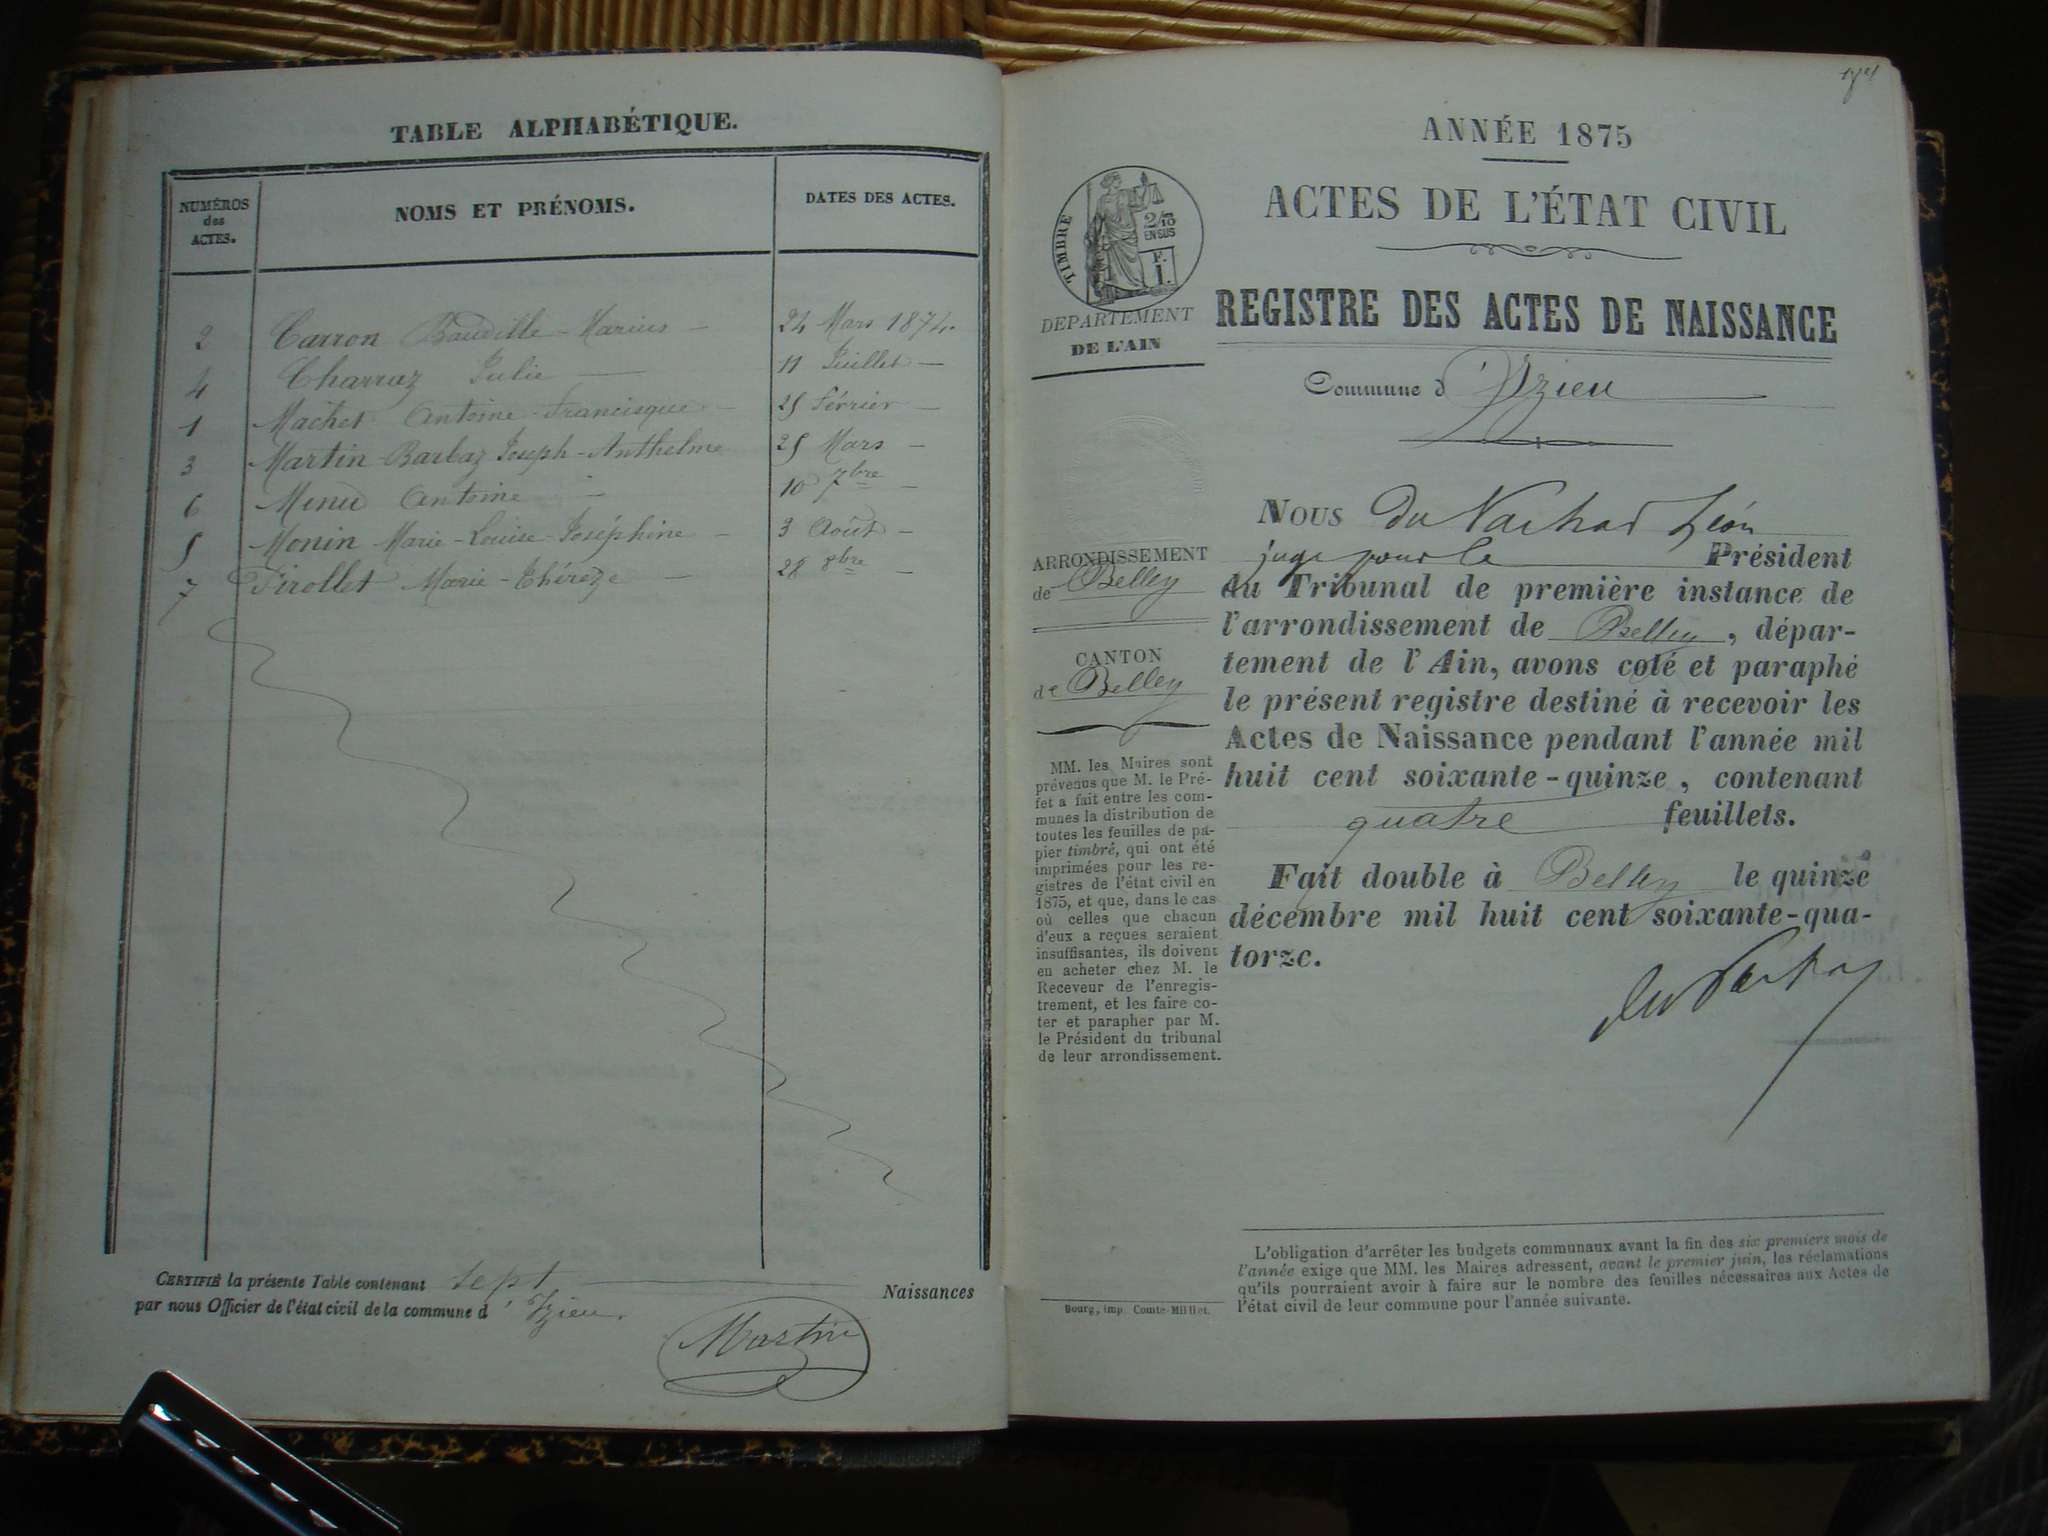 TABLE ALPHABÉTIQUE.
NUMÉROS
des
ACTES.
NOMS ET PRÉNOMS.
DATES DES ACTES.
2 Carron Baudille-Marius - 24 Mars 1874.
4 Charraz Julie - 11 Juillet -
1 Machet Antoine-Francisque - 25 Février -
3 Martin-Barbaz Joseph-Anthelme 25 Mars -
6 Menu Antoine - 10 7bre -
5 Monin Marie-Louise-Joséphine - 3 Août -
7 Pirollet Marie-Thérèze - 28 8bre -
CERTIFIÉ la présente Table contenant sept Naissances
par nous Officier de l'état civil de la commune d'Izieu.
Martin
ANNÉE 1875
ACTES DE L'ÉTAT CIVIL
TIMBRE
2/10
EN SUS
F.
1.
DEPARTEMENT
DE L'AIN
REGISTRE DES ACTES DE NAISSANCE
Commune d'Izieu
ARRONDISSEMENT
de Belley
CANTON
de Belley
MM. les Maires sont
prévenus que M. le Pré-
fet a fait entre les com-
munes la distribution de
toutes les feuilles de pa-
pier timbré, qui ont été
imprimées pour les re-
gistres de l'état civil en
1875, et que, dans le cas
où celles que chacun
d'eux a reçues seraient
insuffisantes, ils doivent
en acheter chez M. le
Receveur de l'enregis-
trement, et les faire co-
ter et parapher par M.
le Président du tribunal
de leur arrondissement.
Bourg, imp. Comte-Milliet.
NOUS du Nachas Léon
juge pour le Président
du Tribunal de première instance de
l'arrondissement de Belley, dépar-
tement de l'Ain, avons coté et paraphé
le présent registre destiné à recevoir les
Actes de Naissance pendant l'année mil
huit cent soixante-quinze, contenant
quatre feuillets.
Fait double à Belley le quinze
décembre mil huit cent soixante-qua-
torze.
L'obligation d'arrêter les budgets communaux avant la fin des six premiers mois de
l'année exige que MM. les Maires adressent, avant le premier juin, les réclamations
qu'ils pourraient avoir à faire sur le nombre des feuilles nécessaires aux Actes de
l'état civil de leur commune pour l'année suivante.